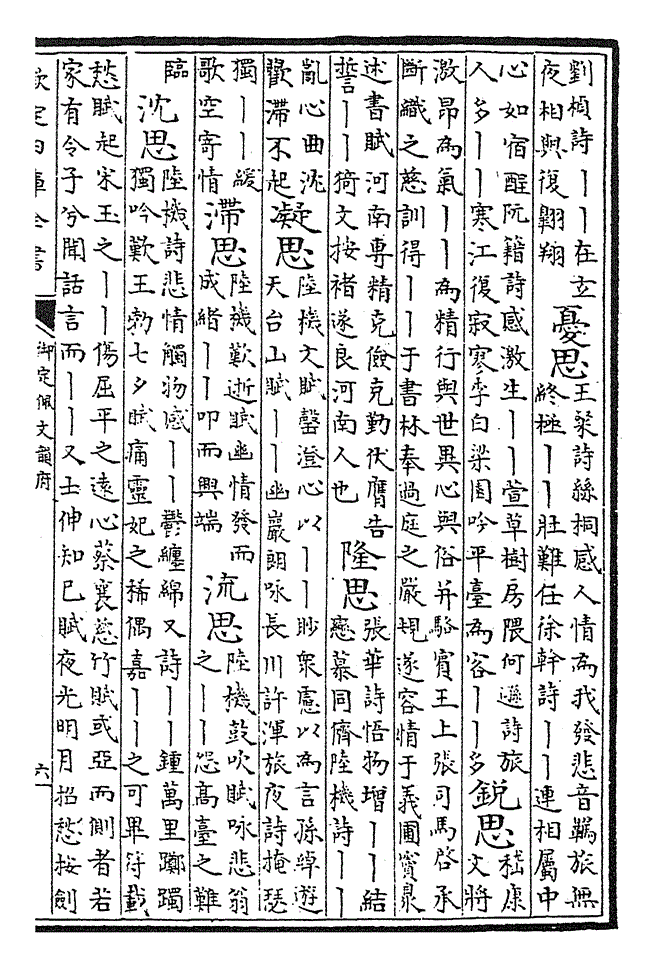 劉楨詩丨丨在玄
夜相與復翺翔
憂思
王粲詩絲桐感人情為我發悲音羈旅無
終極丨丨壯難任徐幹詩丨丨連相屬中
心如宿酲阮籍詩感激生丨丨萱草樹房隈何遜詩旅
人多丨丨寒江復寂寥李白梁園吟平臺為客丨丨多
銳思
嵇康
文將
激昂為氣丨丨為精行與世異心與俗并駱賓王上張司馬啓承
斷織之慈訓得丨丨于書林奉過庭之嚴規遂容情于義圃竇臮
述書賦河南專精克儉克勤伏膺告
誓丨丨猗文按褚遂良河南人也
隆思
張華詩悟物增丨丨結
戀慕同儕陸機詩丨丨
亂心曲沈
歡滯不起
凝思
陸機文賦罄澄心以丨丨眇衆慮以為言孫綽遊
天台山賦丨丨幽巖朗咏長川許渾旅夜詩掩瑟
獨丨丨緩
歌空寄情
滯思
陸機歎逝賦幽情發而
成緒丨丨叩而興端
流思
陸機鼓吹賦咏悲翁
之丨丨怨高臺之難
臨
沈思
陸機詩悲情觸物感丨丨鬱纏綿又詩丨丨鍾萬里躑躅
獨吟歎王勃七夕賦痛靈妃之稀偶嘉丨丨之可畢符載
愁賦起宋玉之丨丨傷屈平之遠心蔡襄慈竹賦或亞而側者若
家有令子兮聞話言而丨丨又士伸知己賦夜光明月招愁按劍
欽定四庫全書
御定佩文韻府
六